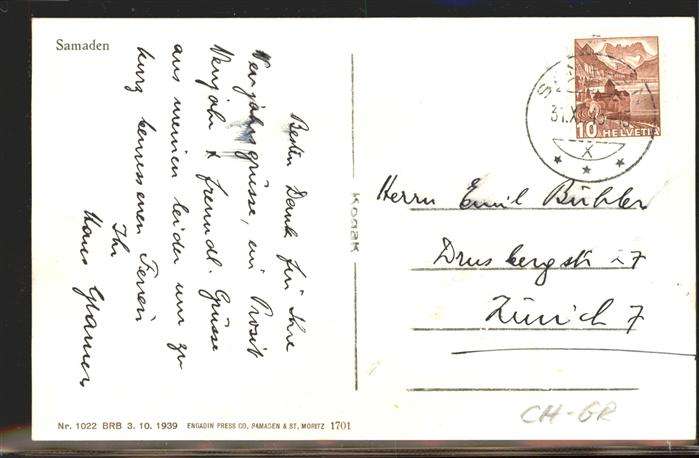 Samaden
Besten Dank für Ihre
Neujahrsgrüsse, ein Prosit
Neujahr & freundl. Grüsse
aus meinen leider nur zu
kurz bemessenen Ferien
Ihr
Hans
10 HELVETIA
31.X
X
KODAK
Herrn Emil Bühler
Drusbergstr 27
Zürich 7
CH-GR
Nr. 1022 BRB 3. 10. 1939 ENGADIN PRESS CO. SAMADEN & ST. MORITZ 1701